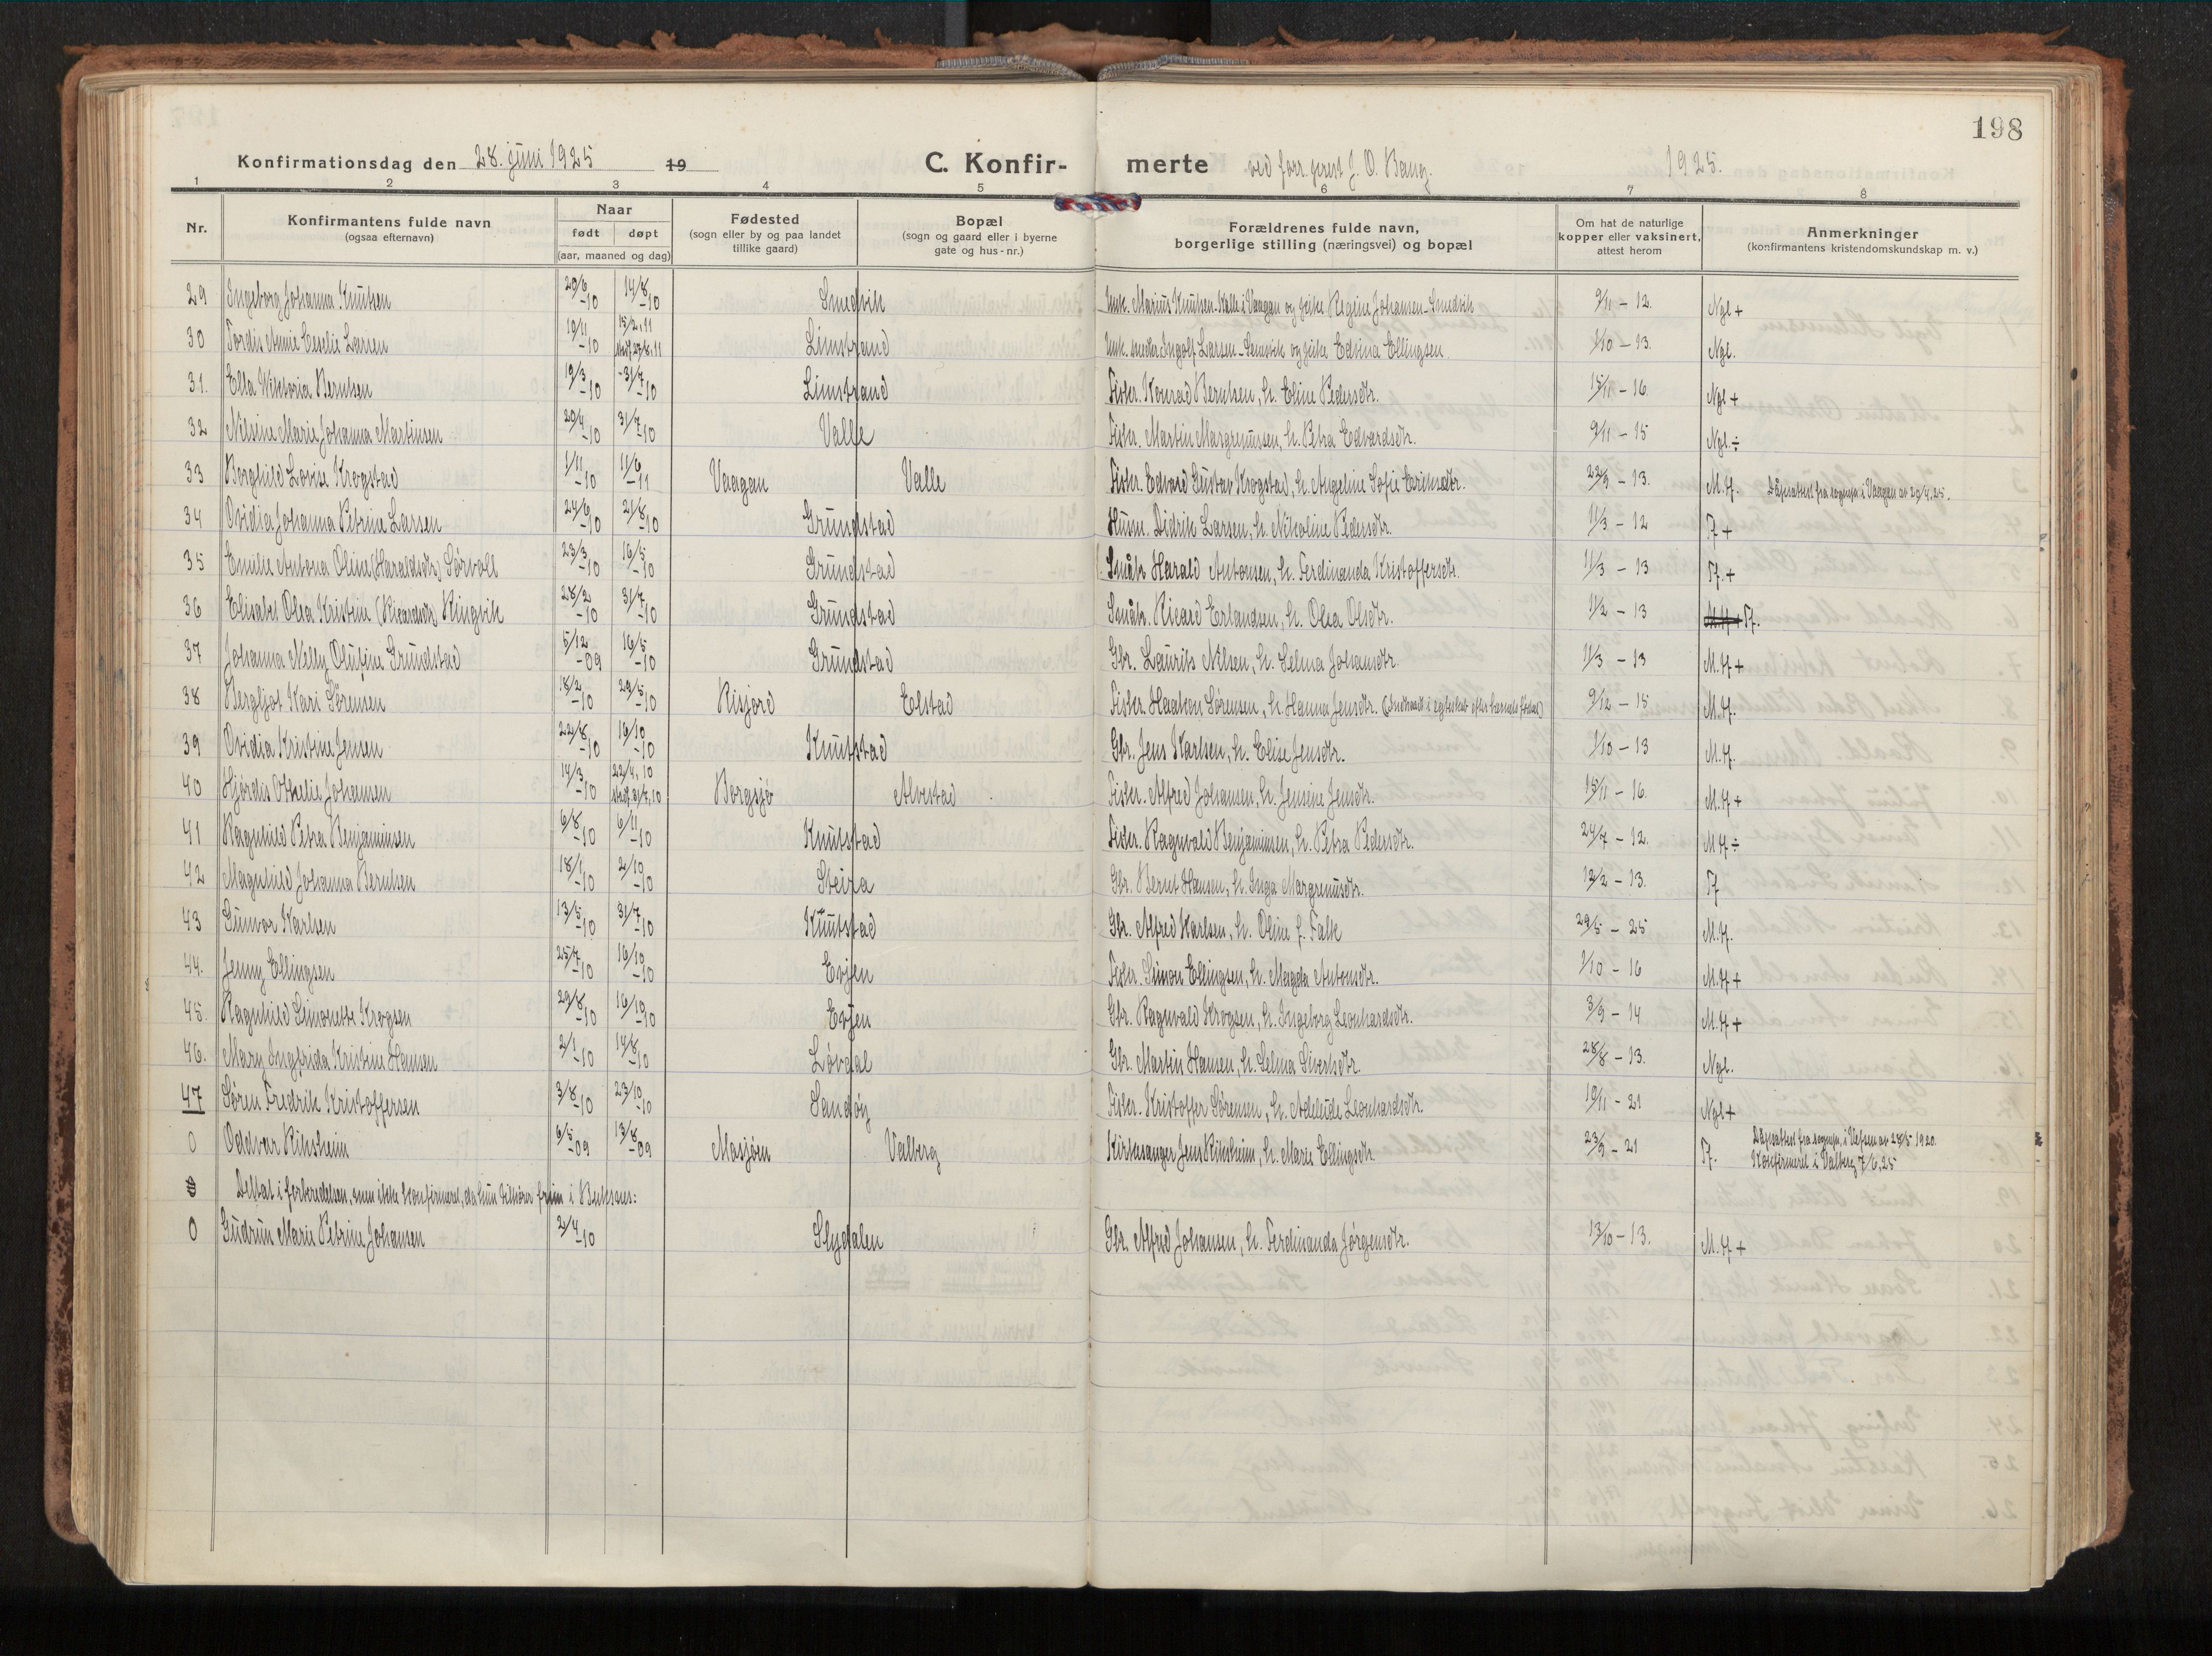 198
Konfirmationsdag den 28. juni 1925 19 C. Konfir- merte ved forr. prest J. O. Bang. 1925.
1 2 3 4 5 6 7 8
Nr. Konfirmantens fulde navn (ogsaa efternavn) Naar født døpt (aar, maaned og dag) Fødested (sogn eller by og paa landet tillike gaard) Bopæl (sogn og gaard eller i byerne gate og hus-nr.) Forældrenes fulde navn, borgerlige stilling (næringsvei) og bopæl Om hat de naturlige kopper eller vaksinert, attest herom Anmerkninger (konfirmantens kristendomskundskap m. v.)
29 Ingeborg Johanna Knutsen 20/6-10 14/8-10 Smedvik Unk. Marius Knutsen-Kalle i Vaagan og pike Regine Johansen-Smedvik 9/11-12. Ngl +
30 Tordis Annie Ceselie Larsen 10/11-10 Limstrand Ingolf Larsen- og pike Edvina Ellingsen. 1/10-13. Ngl.
31. Ella Viktoria Berntsen 19/3-10 31/7-10 Limstrand Fisker. Konrad Berntsen, h. Eline Pedersdtr. 15/11-16 Ngl +
32 Nilsine Marie Johanna Martinsen 20/4-10 31/7-10 Valle Fisker. Martin Margrenussen, h. Petra Edvardsdtr. 9/11-15 Ngl ÷
33 Borghild Lovise Krogstad 1/11-10 11/6-11 Vaagan Valle Fisker. Edvard Gustav Krogstad, h. Angeline Sofie Eriksdtr. 22/9-13. M.H. Dåpsattest fra sognepr. i Vaagan av 29/4.25.
34 Ovidia Johanna Petrine Larsen 24/6-10 21/8-10 Grundstad Husm. Didrik Larsen, h. Nikoline Pedersdtr. 11/3-12 H +
35 Emilie Antona Oline (Haraldsdtr) Sørvoll 23/3-10 16/5-10 Grundstad Småbr Harald Antonsen, h. Ferdinanda Kristoffersdtr. 11/3-13 H. +
36 Elisabet Olea Kristine (Ricardsdtr) Ringvik 28/2-10 31/7-10 Grundstad Småbr. Ricard Erlandsen, h. Olea Olsdtr. 1/2-13 M.H+ H.
37 Johanna Nelly Olufine Grundstad 5/12-09 16/5-10 Grundstad Gbr. Laurits Nilsen, h. Selma Johansdtr. 11/3-13 M.H +
38 Bergljot Kari Sörensen 18/2-10 29/5-10 Risjord Elstad Fisker. Haakon Sörensen, h. Hanna Jensdtr. (Indtraadt i egteskab efter barnets fødsel) 9/12-15 M.H.
39 Ovidia Kristine Jensen 22/8-10 16/10-10 Knutstad Gbr. Jens Karlsen, h. Elise Jensdtr. 1/10-13 M.H.
40 Hjördis Othelie Johansen 14/3-10 22/4, 10 Borgsjö Alvestad Fisker. Alfred Johansen, h. Jensine Jensdtr. 15/11-16. M.H +
41 Ragnhild Petra Benjaminsen 6/8-10 6/11-10 Knutstad Fisker. Ragnvald Benjaminsen, h. Petra Pedersdtr. 24/7-12. M.H ÷
42 Magnhild Johanna Berntsen 18/1-10 2/10-10 Steira Gbr. Bernt Hansen, h. Inga Margrenusdtr. 12/2-13. H
43 Gunvor Karlsen 13/5-10 31/7-10 Knutstad Gbr. Alfred Karlsen, h. Oline f. Falk 29/5-25 M.H.
44. Jenny Ellingsen 25/7-10 16/10-10 Evjen Fisker. Simon Ellingsen, h. Magda Antonsdtr. 1/10-16 M.H +
45. Ragnhild Simonette Krogsen 29/8-10 16/10-10 Evjen Gbr. Ragnvald Krogsen, h. Ingeborg Leonhardsdtr. 3/9-14 M.H +
46. Mary Ingfrida Kristine Hansen 2/1-10 14/8-10 Lövdal Gbr. Martin Hansen, h. Selma Sivertsdtr. 28/8-13. Ngl.
47 Sören Fredrik Kristoffersen 3/8-10 23/10-10 Sandöy Fisker. Kristoffer Sörensen, h. Adeleide Leonhardsdtr. 19/11-21 Ngl +
0 Oddvar Riksheim 6/5-09 13/8-09 Mosjøen Valberg Kirkesanger Jens Riksheim, h. Marie Ellingsdtr. 23/9-21 H. Dåpsattest fra sognepr. i Vefsen av 28/5 1920.
Konfirmeret i Valberg 7/6.25
Deltat i forberedelsen, men ikke konfirmeret, da hun tilhører i Buksnes:
0 Gudrun Marie Petrine Johansen 2/4-10 Slydalen Gbr. Alfred Johansen, h. Ferdinanda Jörgensdtr. 13/10-13. M.H +